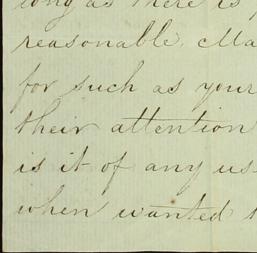 long as there is
reasonable. Ma
for such as your
their attention
is it of any us
when wanted